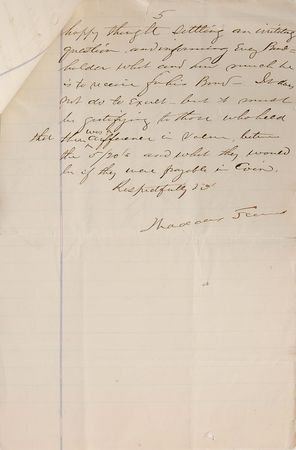 5
happy thought settling an irritating
question and informing every Bond-
holder what and how much he
is to receive for his Bond - It may
not do to Exult - but it must
be gratifying to those who held
that there was no difference in Value, between
the 5/20's and what they would
be if they were payable in Coin.
Respectfully &c
Thaddeus Stevens